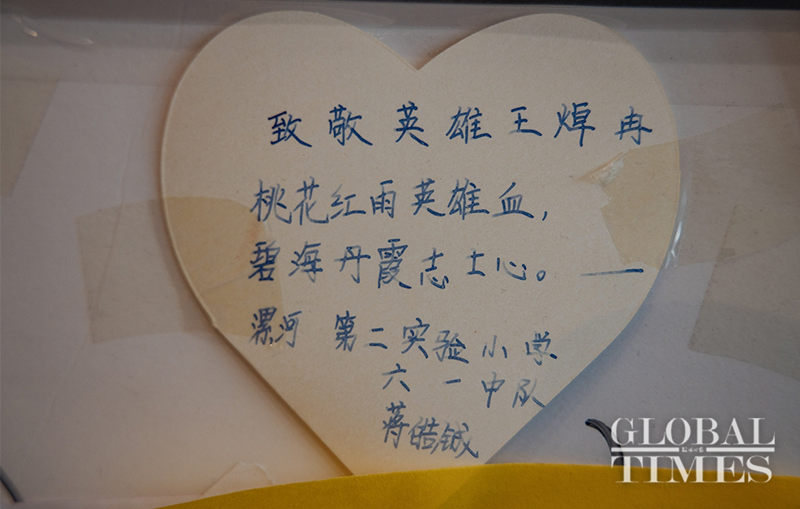 致敬英雄王焯冉
桃花红雨英雄血，
碧海丹霞志士心。——
漯河 第二实验小学
六一中队
蒋皓铖
GLOBAL
TIMES